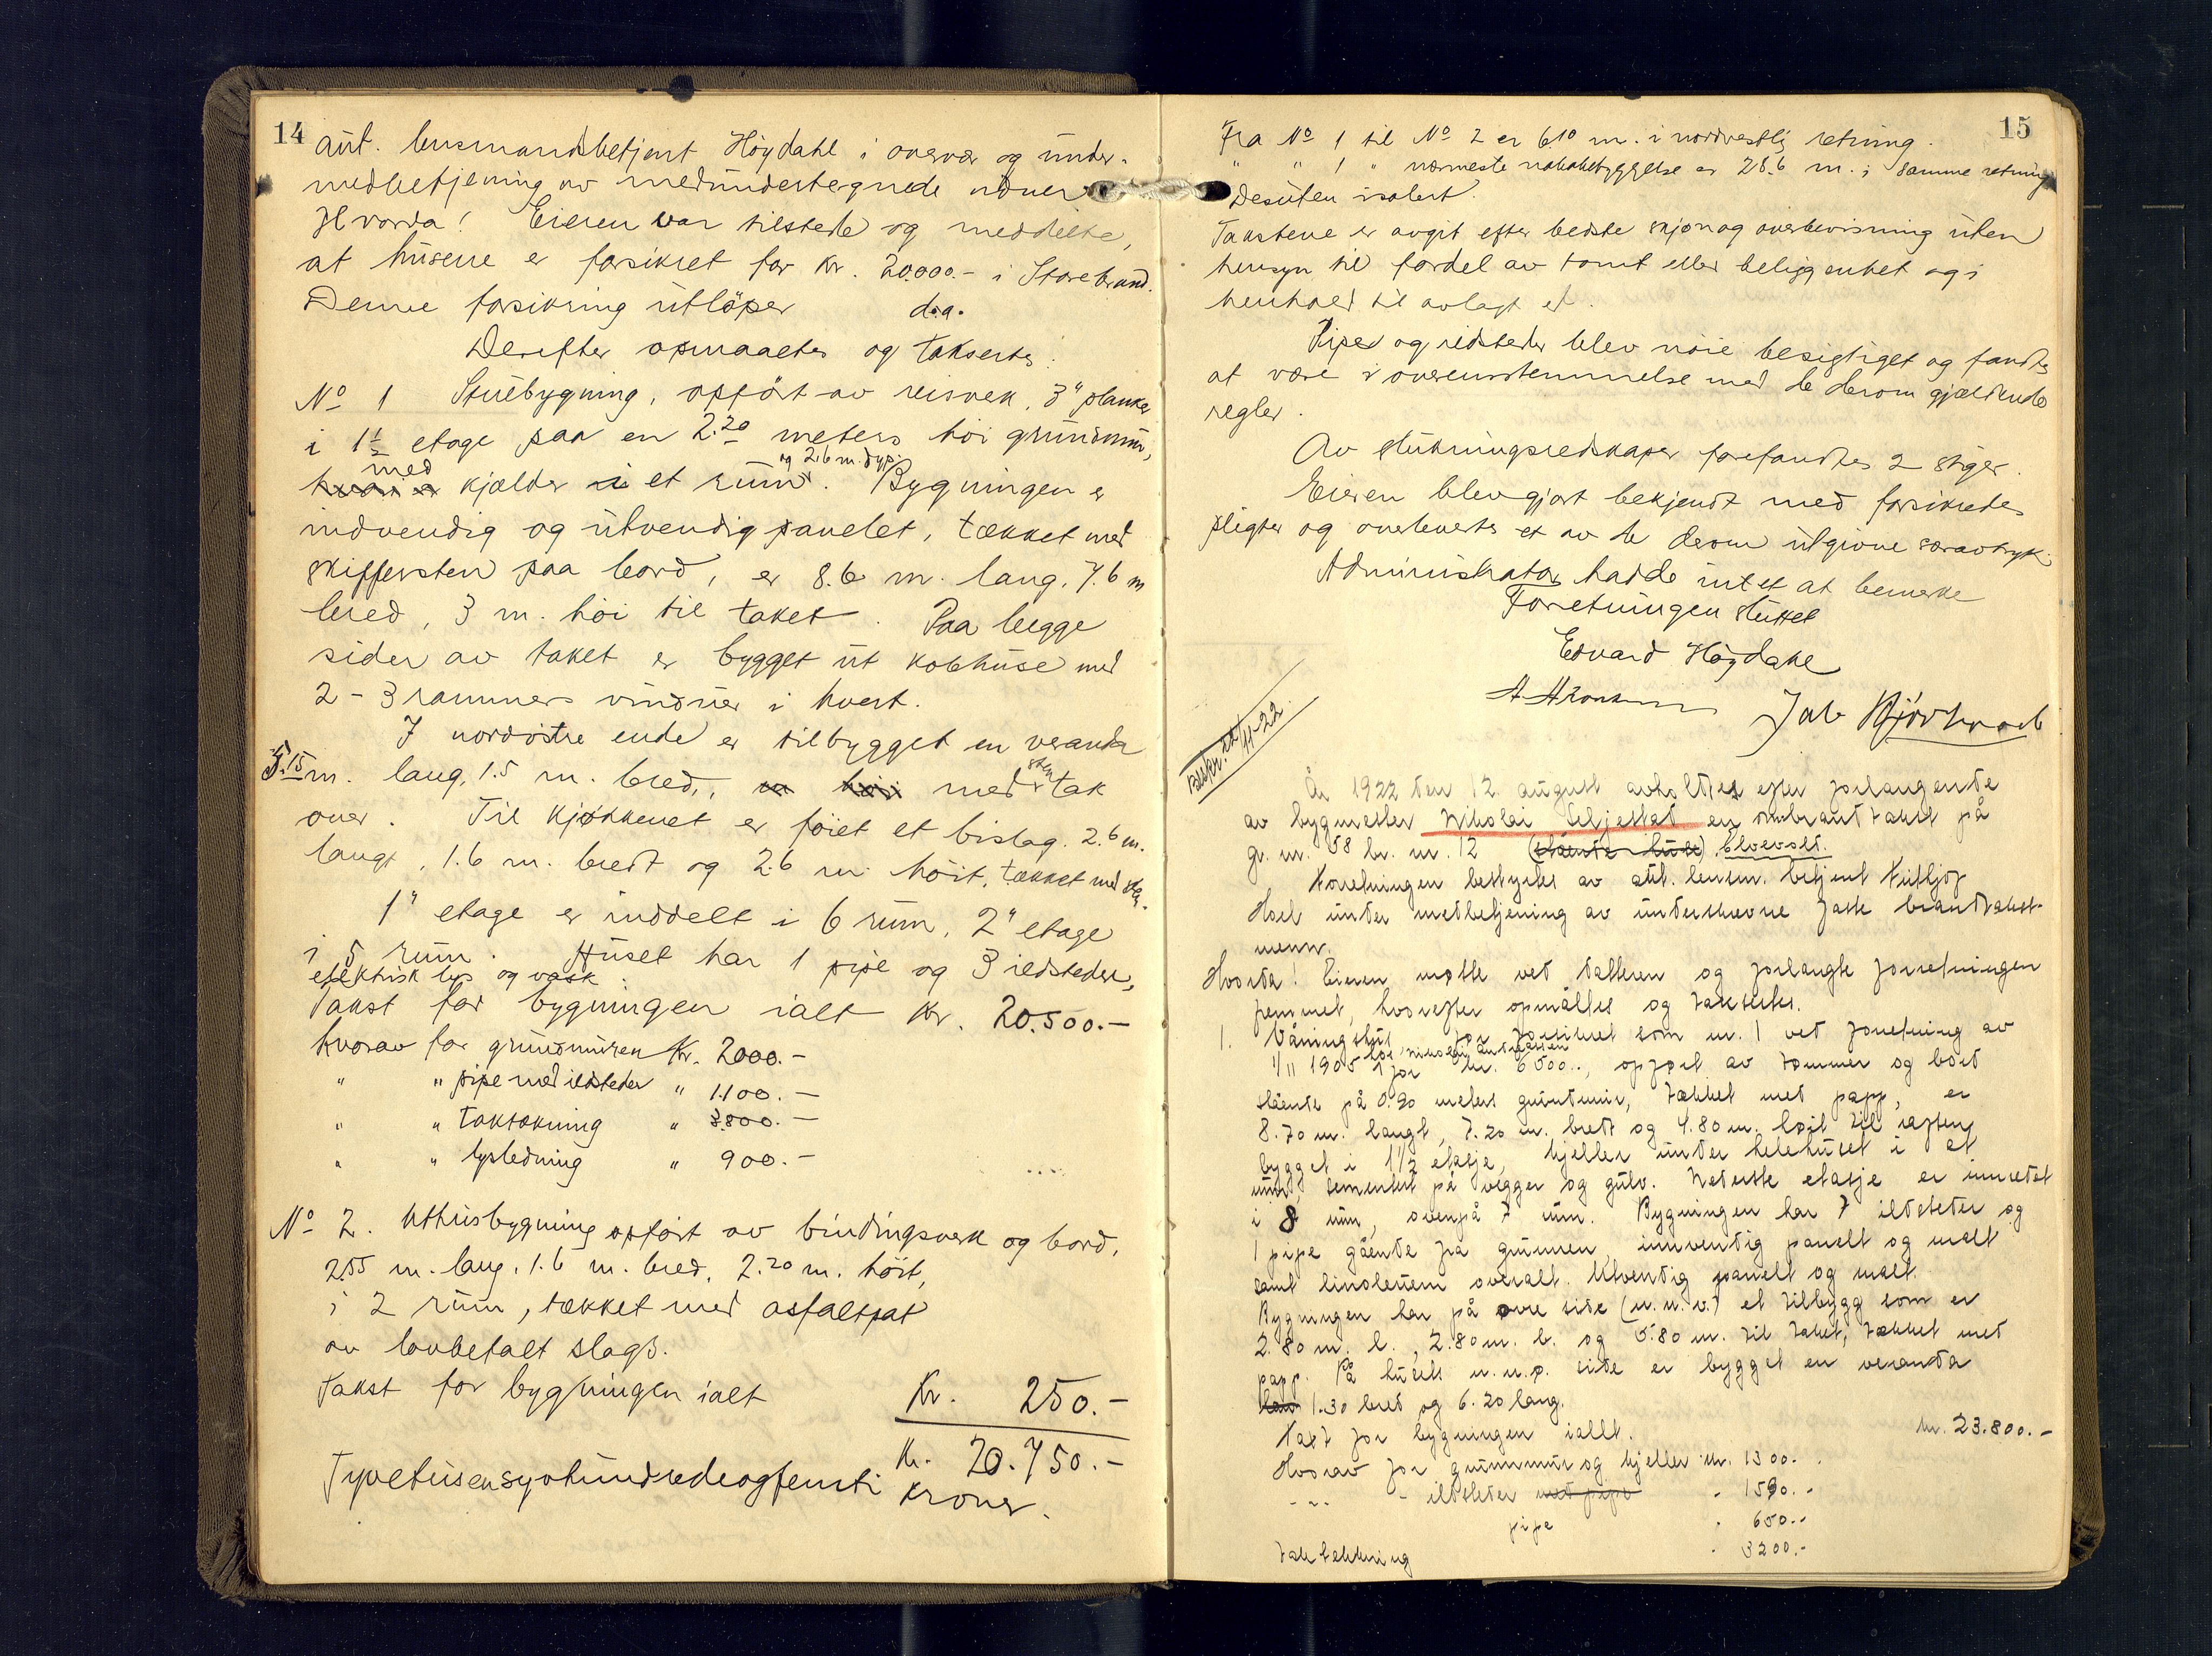 14
aut. lensmandsbetjent Höydahl i overvær og under
medbetjening av medundertegnede
Hvorda! Eieren var tilstede og meddelte,
at husene er forsikret for kr. 20.000.- i Storebrand.
Denne forsikring utlöper d.a.
Derefter opmaaltes og takserte:
No 1 Stuebygning, opført av reisverk, 3" planker
i 1½ etage paa en 2.20 meters høi grundmur,
med og 2.6 m. dyp.
hvori er kjælder i et rum. Bygningen er
indvendig og utvendig panelet, tækket med
skiffersten paa bord, er 8.6 m. lang, 7.6 m
bred, 3 m. höi til taket. Paa begge
sider av taket er bygget ut kobhuse med
2 - 3 rammers vinduer i hvert.
I nordöstre ende er tilbygget en veranda
5.15 m. lang, 1.5 m. bred, m høi med sten tak
over. Til kjøkkenet er föiet et bislag 2.6 m.
langt, 1.6 m. bredt og 2.6 m höit, tækket med sten.
1" etage er inddelt i 6 rum, 2" etage
i 5 rum. Huset har 1 pipe og 3 ildsteder,
elektrisk lys og vask
Takst for bygningen ialt kr. 20.500.-
hvorav for grundmuren Kr. 2000.-
" " pipe med ildsteder " 1.100.-
" " taktækning " 3.800.-
" " lysledning " 900.-
No 2. Uthusbygning opført av bindingsverk og bord,
2.55 m. lang, 1.6 m. bred, 2.20 m. höit,
i 2 rum, tækket med asfaltpap
av lovbefalt slags.
Takst for bygningen ialt Kr. 250.-
Kr. 20.750.-
Tyvetusensyvhundredeogfemti Kroner.
15
Fra No 1 til No 2 er 6.10 m. i nordvestlig retning.
" " 1 " nærmeste nabobebyggelse er 28.6 m. i samme retning
Desuten isolert.
Takstene er avgit efter bedste skjøn og overbevisning uten
hensyn til fordel av tomt eller beliggenhet og i
henhold til avlagt ed.
Pipe og ildsteder blev nöie besigtiget og fandtes
at være i overensstemmelse med de derom gjældende
regler.
Av slukningsredskaper forefandtes 2 stiger.
Eieren blev gjort bekjendt med forsikredes
pligter og overlevertes et av de derom utgivne særavtryk.
Administrator hadde intet at bemerke
Forretningen sluttet
Edvard Höydahl
Bekr. 22/11-22.
År 1922 den 12. august avholdtes efter forlangende
av bygmester Nikolai Seljestad en ombrandtakst på
gr. nr. 58 br. nr. 12 (stående huse) Elvevolt.
Forretningen bestyrtes av aut. lensm. betjent
under medbetjening av underskrevne faste brandtakst-
menn.
Hvorda! Eieren møtte ved datteren og forlangte forretningen
fremmet, hvorefter opmåltes og taksertes.
1. Våningshus, før forsikret som nr. 1 ved forretning av
1/11 1905 hos Nikolai Andreassen for kr. 6500.-, opført av tømmer og bord
stående på 0.90 meters grundmur, tækket med papp, er
8.70 m. langt, 7.20 m. bredt og 4.80 m. høit til raften,
bygget i 1½ etasje, kjeller under hele huset i et
rum, sementert på vegger og gulv. Nederste etasje er innredet
i 8 rum, ovenpå 7 rum. Bygningen har 7 ildsteder og
1 pipe gående fra grunnen, innvendig panelt og malt
samt linoleum overalt. Utvendig panelt og malt.
Bygningen har på øvre side (n.n.v.) et tilbygg som er
2.80 m. l., 2.80 m. b. og 5.80 m. til taket, tækket med
papp. På husets n.n.ø. side er bygget en veranda
1.30 bred og 6.20 lang.
Takst for bygningen iallt. kr. 23.800.-
Hvorav for grunnmur og kjeller kr. 1300.-
- " - - ildsteder med pipe " 1590.-
pipe " 650.-
taktekkning " 3200.-